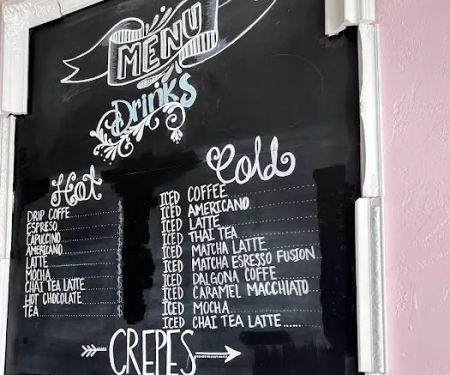 MENU
Drinks
Hot
DRIP COFFE
ESPRESO
CAPUCCINO
AMERICANO
LATTE
MOCHA
CHAI TEA LATTE
HOT CHOCOLATE
TEA
Cold
ICED COFFEE
ICED AMERICANO
ICED LATTE
ICED THAI TEA
ICED MATCHA LATTE
ICED MATCHA ESRESSO FUSION
ICED DALGONA COFFE
ICED CARAMEL MACCHIATO
ICED MOCHA
ICED CHAI TEA LATTE......
CREPES